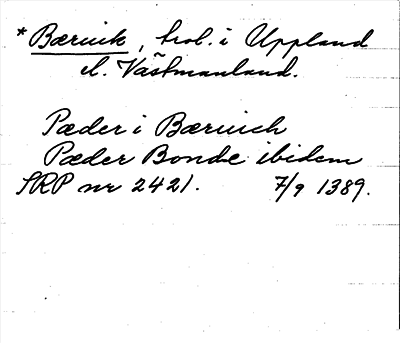 * Bæruik, trol. i Uppland
el. Västmanland.
Pæder i Bæruich
Pæder Bonde ibidem
SRP nr 2421. 7/9 1389.